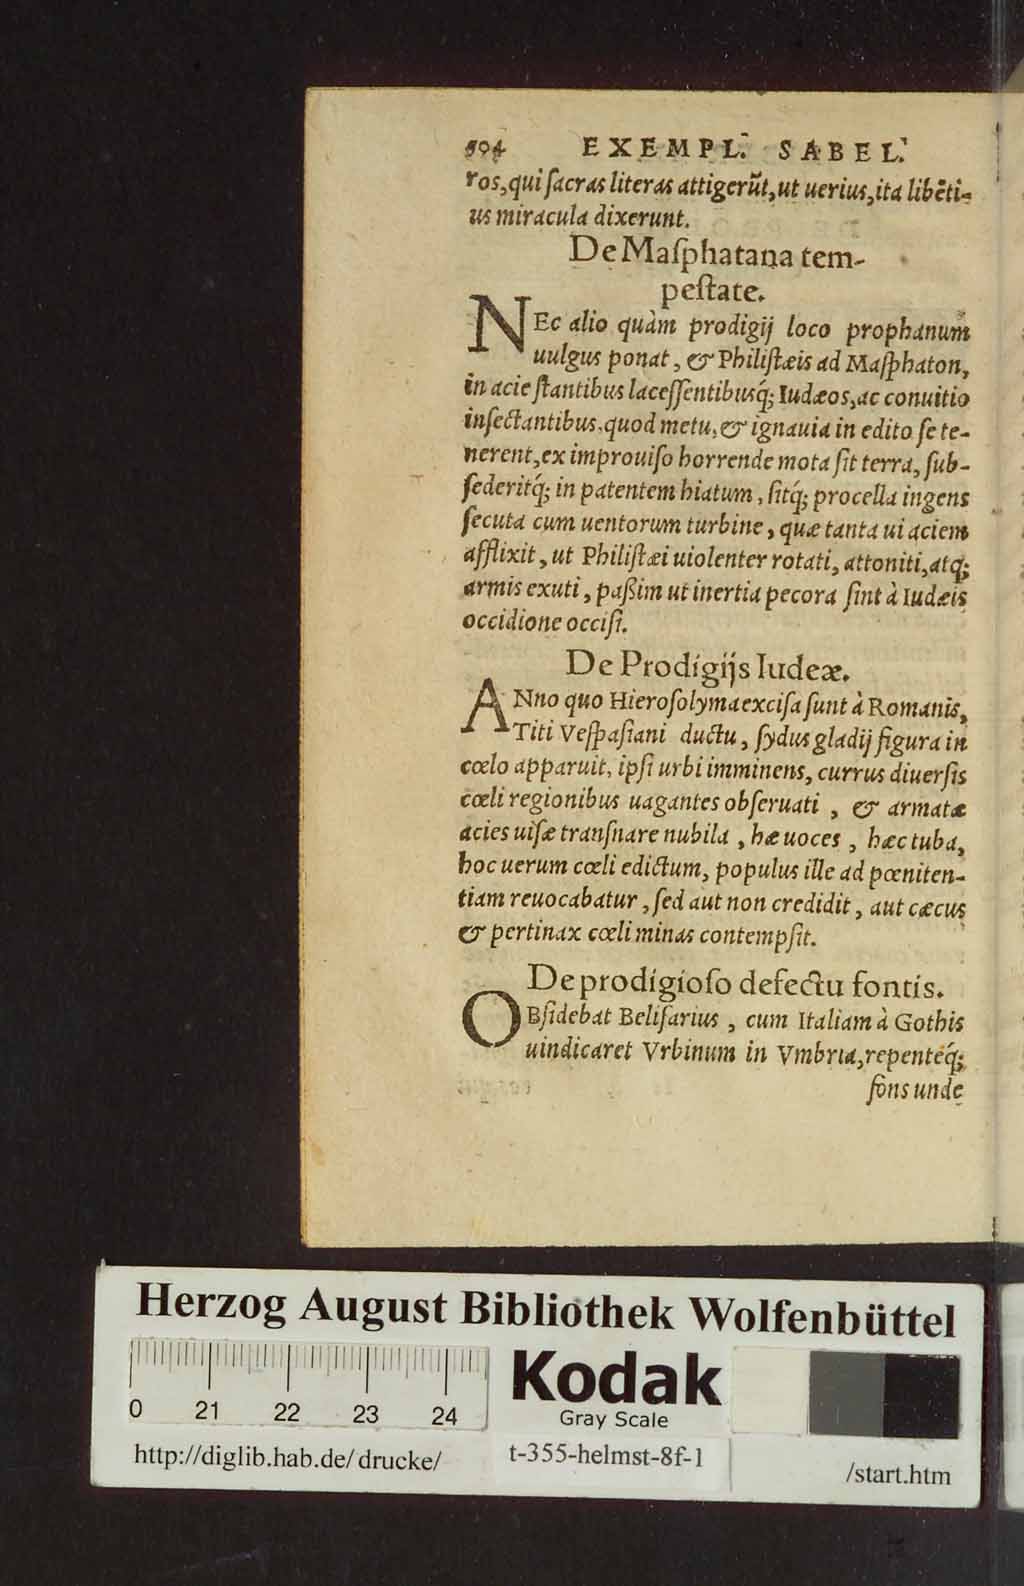 504 EXEMPL. SABEL.
ros, qui ſacras literas attigerūt, ut uerius, ita libēti-
us miracula dixerunt.
De Maſphatana tem-
peſtate.
NEc alio quàm prodigij loco prophanum
uulgus ponat, & Philiſtæis ad Maſphaton,
in acie ſtantibus laceſſentibusq́; Iudæos, ac conuitio
inſectantibus, quod metu, & ignauia in edito ſe te-
nerent, ex improuiſo horrende mota ſit terra, ſub-
ſederitq́; in patentem hiatum, ſitq́; procella ingens
ſecuta cum uentorum turbine, quæ tanta ui aciem
afflixit, ut Philiſtæi uiolenter rotati, attoniti, atq;
armis exuti, paßim ut inertia pecora ſint à Iudæis
occidione occiſi.
De Prodigijs Iudeæ.
ANno quo Hieroſolyma exciſa ſunt à Romanis,
Titi Veſpaſiani ductu, ſydus gladij figura in
cœlo apparuit, ipſi urbi imminens, currus diuerſis
cœli regionibus uagantes obſeruati, & armatæ
acies uiſæ tranſnare nubila, hæ uoces, hæc tuba,
hoc uerum cœli edictum, populus ille ad pœniten-
tiam reuocabatur, ſed aut non credidit, aut cæcus
& pertinax cœli minas contempſit.
De prodigioſo defectu fontis.
OBſidebat Beliſarius, cum Italiam à Gothis
uindicaret Vrbinum in Vmbria, repenteq́;
fons unde
Herzog August Bibliothek Wolfenbüttel
0 21 22 23 24
Kodak
Gray Scale
http://diglib.hab.de/drucke/ t-355-helmst-8f-1 /start.htm